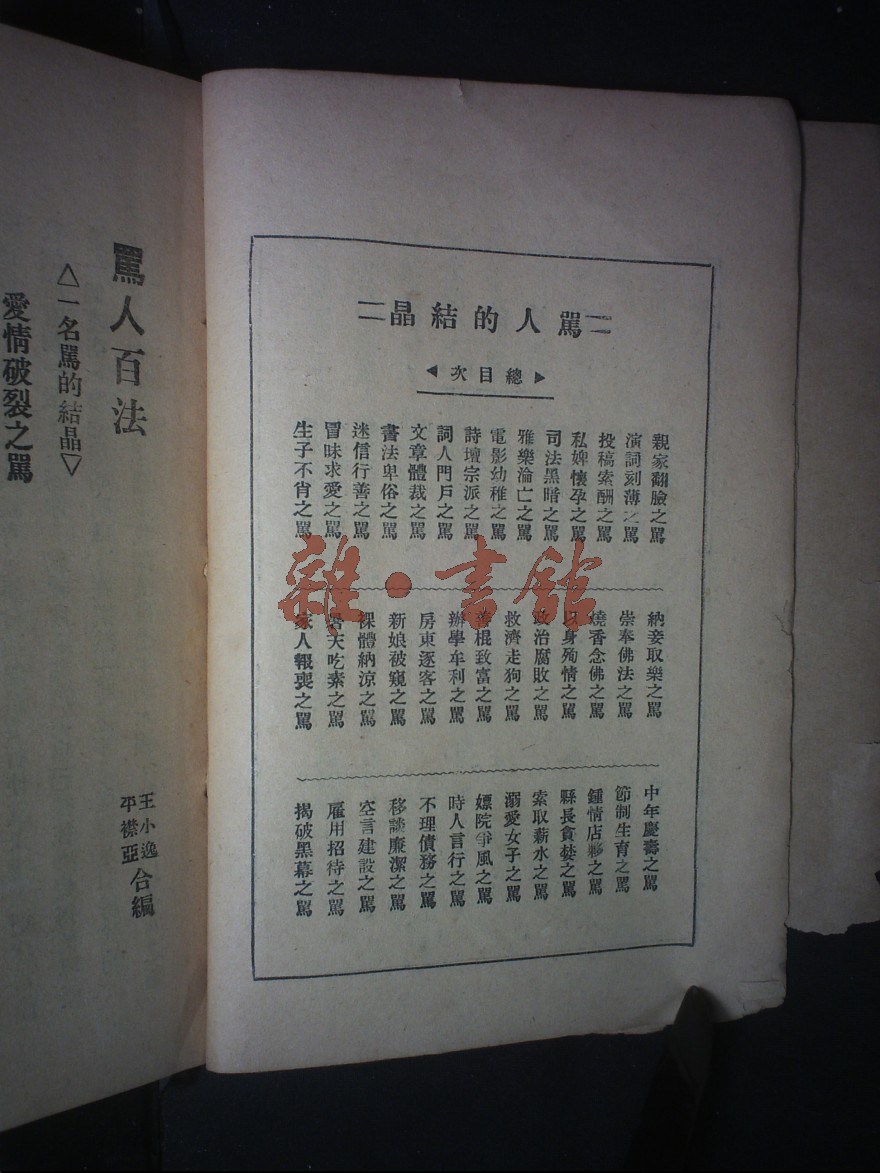 罵人的結晶
總目次
親家翻臉之罵
演詞刻薄之罵
投稿索酬之罵
私婢懷孕之罵
司法黑暗之罵
雅樂淪亡之罵
電影幼稚之罵
詩壇宗派之罵
詞人門戶之罵
文章體裁之罵
書法卑俗之罵
迷信行善之罵
冒昧求愛之罵
生子不肖之罵
納妾取樂之罵
崇奉佛法之罵
燒香念佛之罵
以身殉情之罵
政治腐敗之罵
救濟走狗之罵
善棍致富之罵
辦學牟利之罵
房東逐客之罵
新娘被窺之罵
裸體納涼之罵
暑天吃素之罵
家人報喪之罵
中年慶壽之罵
節制生育之罵
鍾情店夥之罵
縣長貪婪之罵
索取薪水之罵
溺愛女子之罵
嫖院爭風之罵
時人言行之罵
不理債務之罵
移談廉潔之罵
空言建設之罵
雇用招待之罵
揭破黑幕之罵
雜·書館
罵人百法
△一名罵的結晶▽
王小逸
平襟亞
合編
愛情破裂之罵